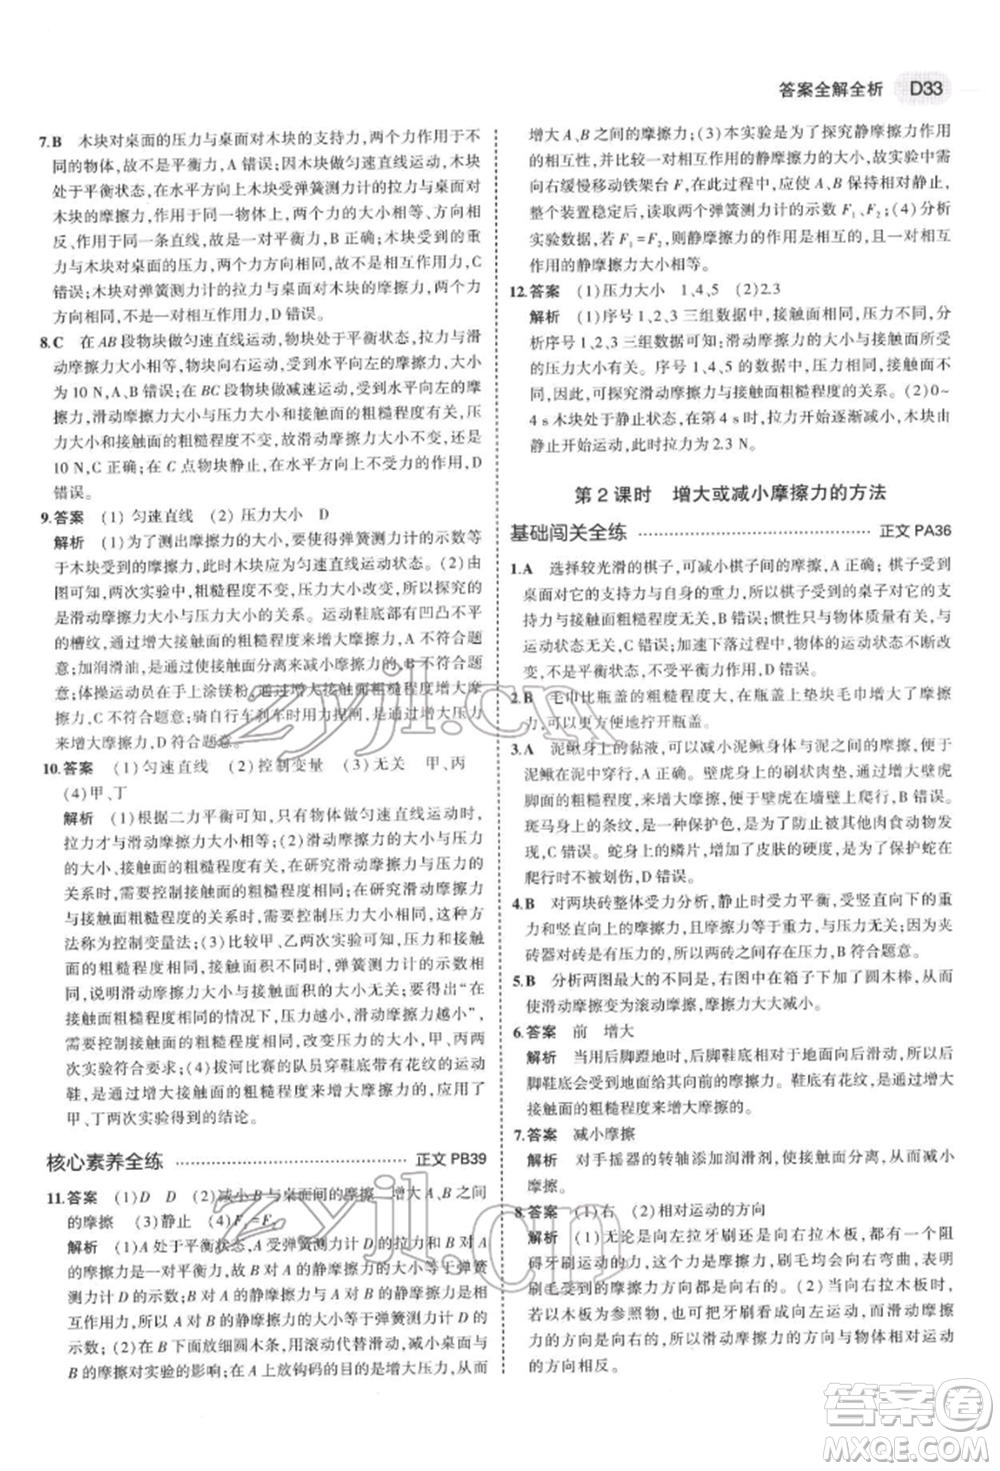 答案全解全析 D33
7.B 木块对桌面的压力与桌面对木块的支持力,两个力作用于不
同的物体,故不是平衡力,A 错误;因木块做匀速直线运动,木块
处于平衡状态,在水平方向上受弹簧测力计的拉力与桌面对
木块的摩擦力,作用于同一物体上,两个力的大小相等、方向相
反、作用于同一条直线,故是一对平衡力,B 正确;木块受到的重
力与木块对桌面的压力方向相同,故不是一对平衡力,C
错误;木块对弹簧测力计的拉力与桌面对木块的摩擦力,方向
相同,不是一对相互作用力,D 错误。
8.C 在 AB 段物块做匀速直线运动,物块处于平衡状态,拉力与滑
动摩擦力大小相等,物块向右运动,受到水平向左的摩擦力,大小
为 10 N,A、B 错误;在 BC 段物块做减速运动,受到水平向左的摩
擦力,滑动摩擦力大小与压力大小和接触面的粗糙程度有关,压
力大小和接触面的粗糙程度不变,故滑动摩擦力大小不变,还是
10 N,C 正确;在 C 点物块静止,水平方向上不受摩擦力,D
错误。
9.答案 (1)匀速直线 (2)压力大小 D
解析 (1)为了测出摩擦力大小,应使弹簧测力计的示数等于
摩擦力大小,此时木块应为匀速直线运动的平衡状态。(2)由
图可知,两次实验中,改变的是压力大小,所以探究的是滑动摩
擦力大小与压力大小的关系。运动鞋底部有凹凸不平的
的槽纹,通过增大接触面的粗糙程度来增大摩擦力,A 不符合题
意;加润滑油,是通过使接触面分离来减小摩擦力,B 不符合题
意。体操运动员在手上涂镁粉,通过增大接触面粗糙程度增大摩
擦力,C 不符合题意;骑自行车刹车时用力捏闸,是通过增大压力
来增大摩擦力,D 符合题意。
10.答案 (1)匀速直线 (2)控制变量 (3)无关 甲、丙
(4)甲、丁
解析 (1)根据二力平衡可知,只有物体做匀速直线运动时,
拉力才与滑动摩擦力大小相等;(2)滑动摩擦力大小与压力大
小、接触面的粗糙程度有关,在研究滑动摩擦力大小与压力的
关系时,需要控制接触面的粗糙程度相同,在研究滑动摩擦力
与接触面的粗糙程度的关系时,需要控制压力大小相同,这种方
法称为控制变量法;(3)比较甲、乙两次实验,压力和接触面的
粗糙程度相同,接触面积不同,弹簧测力计的示数相
同,说明滑动摩擦力大小与接触面积大小无关;若要得到“在接
触面粗糙程度相同的情况下,压力越小,滑动摩擦力越小”的
结论,需要控制接触面的粗糙程度相同,改变压力大小,甲、丙两次
实验符合题意;(4)拔河比赛的队员穿鞋底带有花纹的运动
鞋,是通过增大接触面的粗糙程度来增大摩擦力的,应用了
甲、丁两次实验得到的结论。
核心素养全练 正文 PB39
11.答案 (1)D D (2)减小 B 与桌面间的摩擦 增大 A、B 之间
的摩擦 (3)静止 (4)F₁=F₂
解析 (1)A 处于平衡状态,A 受到的弹簧测力计 D 的拉力和 B 对 A
的摩擦力是一对平衡力,所以 B 对 A 的静摩擦力的大小等于弹簧
测力计 D 的示数;A 对 B 的静摩擦力与 B 对 A 的静摩擦力是相
互作用力,所以 A 对 B 的静摩擦力的大小等于弹簧测力计 D 的
示数;(2)B 下面放细圆木条,用滚动代替滑动,减小桌面与 B 的
摩擦对实验的影响;在 A 上放钩码的目的是增大压力,从而
增大 A、B 之间的摩擦力;(3)本实验是为了探究静摩擦力作用
的相互性,并且要测量相互作用的静摩擦力的大小,故需
向右缓慢移动铁架台 F,在此过程中,应使 A、B 保持相对静止,
整个装置稳定后,读取两个弹簧测力计的示数 F₁、F₂;(4)分析
实验数据,若 F₁=F₂,则静摩擦力的作用是相互的,且相互作用
的静摩擦力大小相等。
12.答案 (1)压力大小 1、4、5 (2)2.3
解析 (1)序号 1、2、3 三组数据中,接触面相同,压力不同,分
析序号 1、2、3 三组数据可知:滑动摩擦力大小与压力大小
有关。序号 1、4、5 的三组实验中,压力相同,接触面不
同,因此,可以探究滑动摩擦力与接触面粗糙程度的关系;(2)0~
4 s 木块处于静止状态,在第 4 s 时,拉力开始逐渐减小,木块由
静止开始运动,此时拉力为 2.3 N。
第 2 课时 增大或减小摩擦力的方法
基础闯关全练 正文 PA36
1.A 选择较光滑的棋子,可减小棋子间的摩擦,A 正确;棋子受到
桌面对它的支持力与自身的重力,是一对平衡力,B 错误;惯性只与物体的质量有关,与
速度无关,C 错误;棋子下落过程中,物体的运动状态不断改
变,不是平衡状态,不受平衡力作用,D 错误。
2.B 毛巾比瓶盖的粗糙程度大,在瓶盖上垫块毛巾增大了摩擦
力,可以更方便地拧开瓶盖。
3.A 泥鳅身上的黏液,可以减小泥鳅身体与泥之间的摩擦,方便
泥鳅在泥中穿行,A 正确。壁虎身上的刷状肉垫,通过增大与壁虎
脚面的粗糙程度增大摩擦,便于壁虎在墙壁上爬行,B 错误。
斑马身上的条纹,是一种保护色,可以防止其他肉食动物发
现,C 错误。蛇身上的鳞片,增加了皮肤的硬度,是为了保护蛇在
爬行时不被划伤,D 错误。
4.B 对两块砖整体受力分析,静止时受力平衡,受竖直向下的重
力和竖直向上的摩擦力,重力大小等于摩擦力大小。因为夹
砖器对砖是有压力的,所以两砖之间存在压力,B 符合题意。
5.B 分析两图最大的不同是,右图中在箱子下加了圆木棒,从而
使滑动摩擦变为滚动摩擦,摩擦力大大减小。
6.答案 前 增大
解析 当用后脚蹬地时,相对于地面有向后滑动,所以
受到地面给其向前的摩擦力。鞋底有花纹,是通过增大
接触面的粗糙程度增大摩擦的。
7.答案 减小摩擦
解析 对手摇器的转轴添加润滑剂,是为了减小接触面间的
摩擦。
8.答案 (1)右 (2)相对运动的方向
解析 (1)无论是向左拉牙刷还是向右拉木板,总会有一个阻
碍牙刷运动的摩擦力,所以刷毛受到向右的摩擦力,故
刷毛受力方向都是向右的。(2)实验中,当向右拉木板时,
若以木板为参照物,则牙刷看成向左运动,此时受到向右
的摩擦力,所以滑动摩擦力的方向与物体相对运动
的方向相反。
zyjl.cn
zyjl.cn
答案圈
MXQE.COM